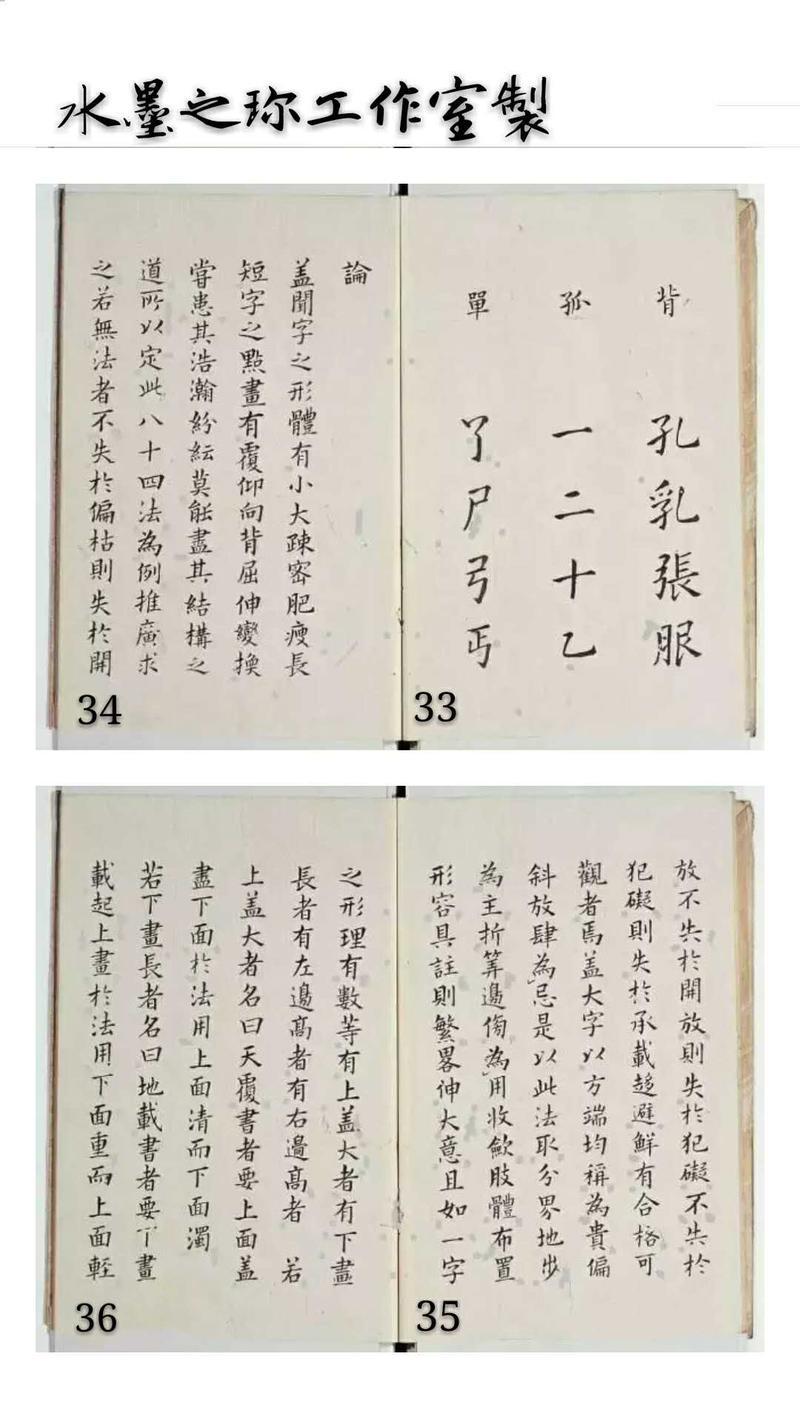 水墨之珎工作室製
背 孔乳張服
孤 一二十乙
單 丫尸弓丏
33
論
盖聞字之形體有小大疎密肥瘦長
短字之點畫有覆仰向背屈伸變換
甞患其浩瀚紛紜莫能盡其結構之
道所以定此八十四法為例推廣求
之若無法者不失於偏枯則失於開
34
放不失於開放則失於犯礙不失於
犯礙則失於承載趍避鮮有合格可
觀者焉盖大字以方端均稱為貴偏
斜放肆為忌是以此法取分界地步
為主折筭邉傍為用收斂肢體布置
形容具註則繁畧伸大意且如一字
35
之形理有數等有上盖大者有下畫
長者有左邉髙者有右邉髙者 若
上盖大者名曰天覆書者要上面盖
盡下面於法用上面清而下面濁
若下畫長者名曰地載書者要下畫
載起上畫於法用下面重而上面輕
36